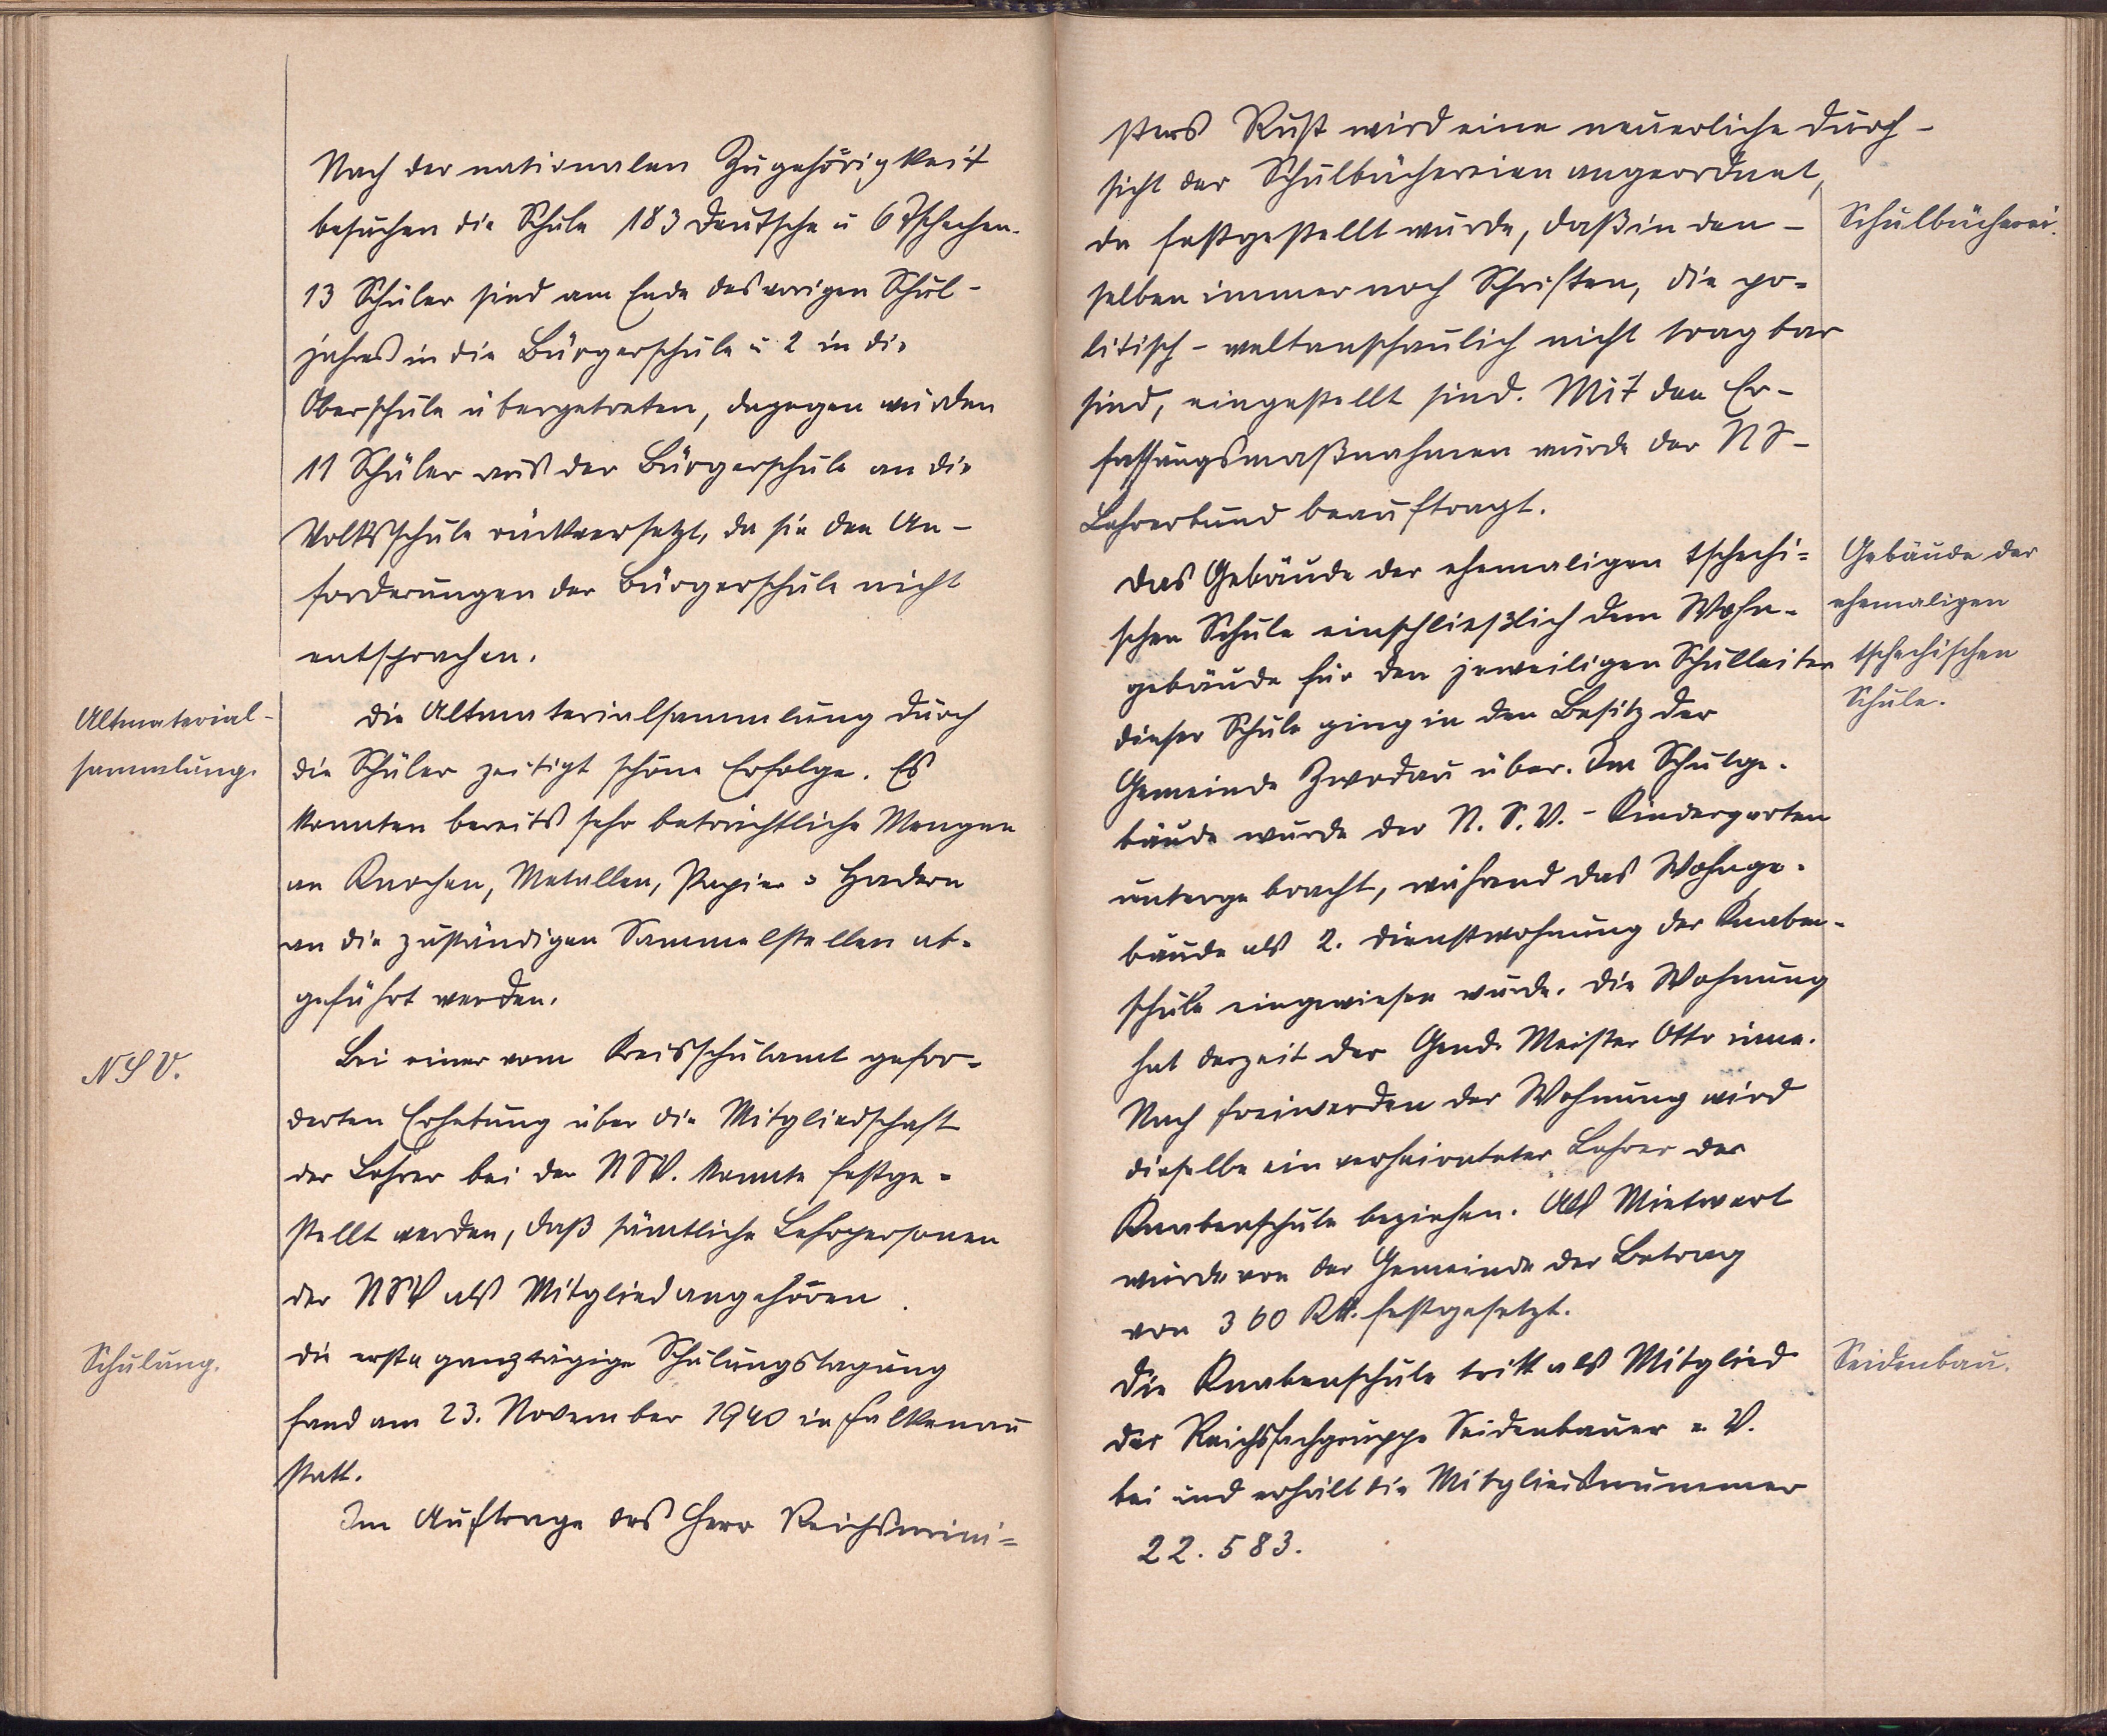 Nach der nationalen Zugehörigkeit
besuchen die Schule 183 Deutsche u 6 Tschechen.
13 Schüler sind am Ende des vorigen Schul-
jahres in die Bürgerschule u 2 in die
Oberschule übergetreten, dagegen wurden
11 Schüler aus der Bürgerschule an die
Volksschule rückversetzt, da sie den An-
forderungen der Bürgerschule nicht
entsprachen.
Altmaterial-
sammlung.
Die Altmaterialsammlung durch
die Schüler zeitigt schöne Erfolge. Es
konnten bereits sehr beträchtliche Mengen
an Knochen, Metallen, Papier u Hadern
an die zuständigen Sammelstellen ab-
geführt werden.
NSV.
Bei einer vom Kreisschulamt gefor-
derten Erhebung über die Mitgliedschaft
der Lehrer bei der NSV. konnte festge-
stellt werden, daß sämtliche Lehrpersonen
der NSV als Mitglied angehören.
Schulung.
Die erste ganztägige Schulungstagung
fand am 23. November 1940 in Falkenau
statt.
Im Auftrage des Herr Reichsmini=
sters Rust wird eine neuerliche Durch-
sicht der Schulbüchereien angeordnet,
Schulbücherei.
da festgestellt wurde, daß in den-
selben immer noch Schriften, die po-
litisch-weltanschaulich nicht tragbar
sind, eingestellt sind. Mit den Er-
fassungsmaßnahmen wurde der NS-
Lehrerbund beauftragt.
Gebäude der
ehemaligen
tschechischen
Schule.
Das Gebäude der ehemaligen tschechi=
schen Schule einschließlich dem Wohn-
gebäude für den jeweiligen Schulleiter
dieser Schule ging in den Besitz der
Gemeinde Zwodau über. Im Schulge-
bäude wurde der N.S.V.-Kindergarten
untergebracht, während das Wohnge-
bäude als 2. Dienstwohnung der Knaben-
schule eingewiesen wurde. Die Wohnung
hat derzeit der Gend. Meister Otto inne.
Nach Freiwerden der Wohnung wird
dieselbe ein verheirateter Lehrer der
Knabenschule beziehen. Als Mietwert
wurde von der Gemeinde der Betrag
von 360 RM. festgesetzt.
Seidenbau.
Die Knabenschule tritt als Mitglied
der Reichsfachgruppe Seidenbauer e. V.
bei und erhält die Mitgliedsnummer
22.583.